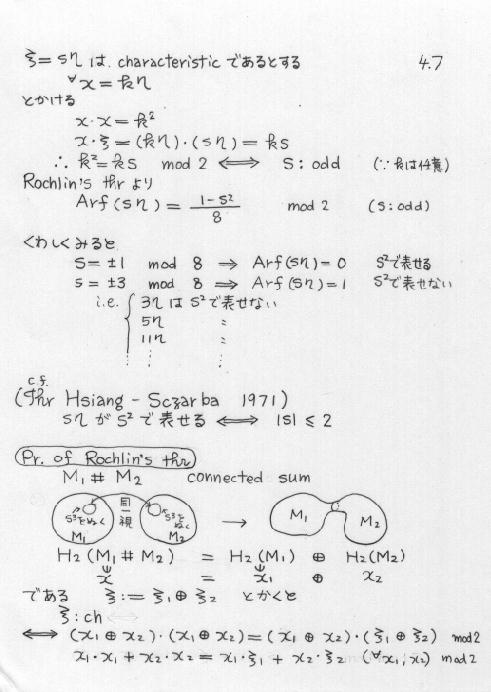 ξ = sη は characteristic であるとする 4.7
∀x = kη
とかける
x・x = k²
x・ξ = (kη)・(sη) = ks
∴ k² = ks mod 2 ⟺ s : odd (∵ kは任意)
Rochlin's thr より
Arf(sη) = (1-s²)/8 mod 2 (s : odd)
くわしくみると
s = ±1 mod 8 ⇒ Arf(sη) = 0 S²で表せる
s = ±3 mod 8 ⇒ Arf(sη) = 1 S²で表せない
i.e. { 3η は S²で表せない
5η 〃
11η 〃
⋮ ⋮
c.f.
(Thr Hsiang - Sczarba 1971)
sη が S² で表せる ⟺ |s| ≤ 2
Pr. of Rochlin's thr
M₁ # M₂ connected sum
S³をぬく M₁ 同一視 S³をぬく M₂ → M₁ M₂
H₂(M₁ # M₂) = H₂(M₁) ⊕ H₂(M₂)
x = x₁ ⊕ x₂
である ξ := ξ₁ ⊕ ξ₂ とかくと
ξ : ch
⟺ (x₁ ⊕ x₂)・(x₁ ⊕ x₂) = (x₁ ⊕ x₂)・(ξ₁ ⊕ ξ₂) mod 2
x₁・x₁ + x₂・x₂ = x₁・ξ₁ + x₂・ξ₂ (∀x₁, x₂) mod 2